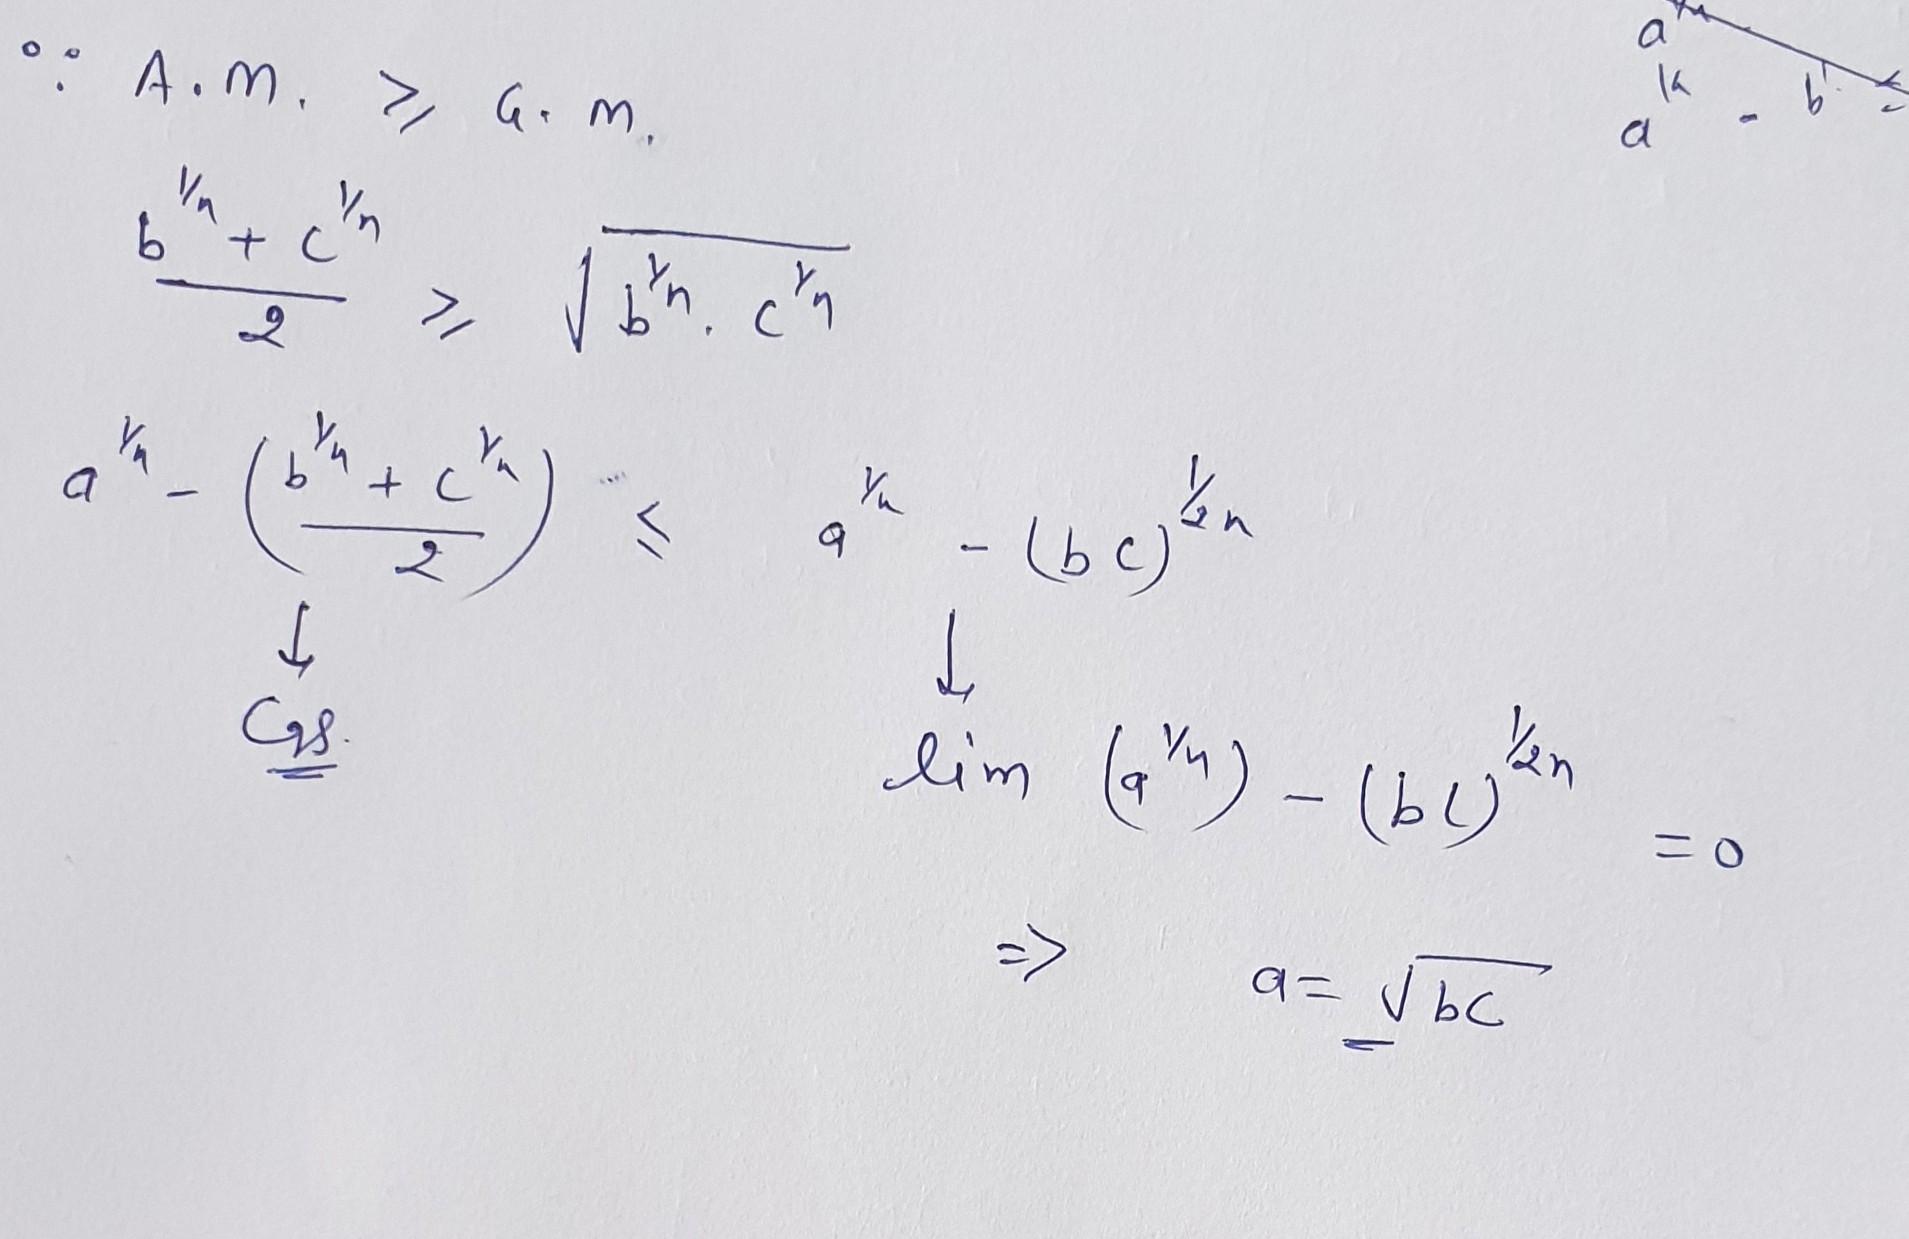 ∵ A.M. ≥ G.M.
a
a^k - b
(b^(1/n) + c^(1/n))/2 ≥ √(b^(1/n) . c^(1/n))
a^(1/n) - ((b^(1/n) + c^(1/n))/2) ≤ a^(1/n) - (bc)^(1/2n)
↓ ↓
Cgs.
lim (a^(1/n)) - (bc)^(1/2n) = 0
⇒ a = √bc